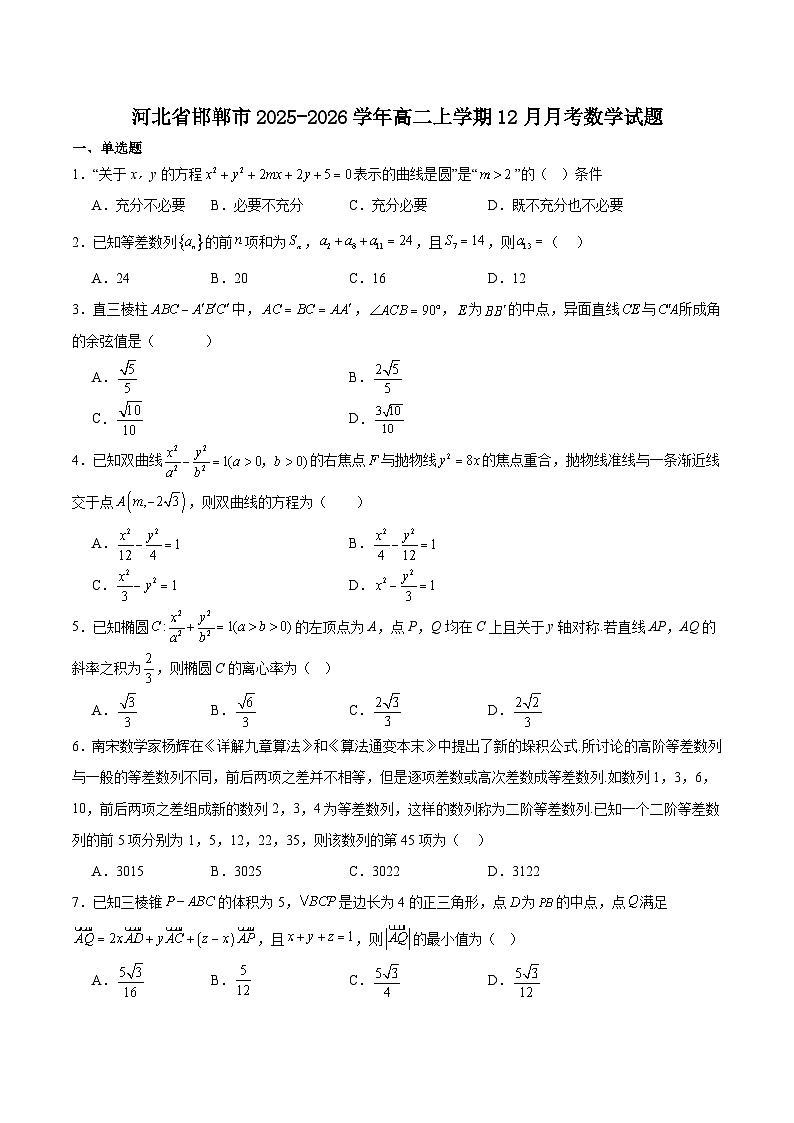 河北省邯郸市2025-2026学年高二上学期12月月考数学试题
一、单选题
1.“关于x,y的方程x²+y²+2mx+2y+5=0表示的曲线是圆”是“m>2”的（ ）条件
A.充分不必要 B.必要不充分 C.充分必要 D.既不充分也不必要
2.已知等差数列{aₙ}的前n项和为Sₙ,a₂+a₈+a₁₁=24,且S₇=14,则a₁₃=（ ）
A.24 B.20 C.16 D.12
3.直三棱柱ABC-A′B′C′中,AC=BC=AA′,∠ACB=90°,E为BB′的中点,异面直线CE与C′A所成角
的余弦值是（ ）
A.√5/5 B.2√5/5
C.√10/10 D.3√10/10
4.已知双曲线x²/a²-y²/b²=1(a>0,b>0)的右焦点F与抛物线y²=8x的焦点重合,抛物线准线与一条渐近线
交于点A(m,-2√3),则双曲线的方程为（ ）
A.x²/12-y²/4=1 B.x²/4-y²/12=1
C.x²/3-y²=1 D.x²-y²/3=1
5.已知椭圆C:x²/a²+y²/b²=1(a>b>0)的左顶点为A,点P,Q均在C上且关于y轴对称.若直线AP,AQ的
斜率之积为2/3,则椭圆C的离心率为（ ）
A.√3/3 B.√6/3 C.2√3/3 D.2√2/3
6.南宋数学家杨辉在《详解九章算法》和《算法通变本末》中提出了新的垛积公式.所讨论的高阶等差数列
与一般的等差数列不同,前后两项之差并不相等,但是逐项差数或高次差数成等差数列.如数列1,3,6,
10,前后两项之差组成新的数列2,3,4为等差数列,这样的数列称为二阶等差数列.已知一个二阶等差数
列的前5项分别为1,5,12,22,35,则该数列的第45项为（ ）
A.3015 B.3025 C.3022 D.3122
7.已知三棱锥P-ABC的体积为5,VBCP是边长为4的正三角形,点D为PB的中点,点Q满足
AQ=2xAD+yAC+(z-x)AP,且x+y+z=1,则|AQ|的最小值为（ ）
A.5√3/16 B.5/12 C.5√3/4 D.5√3/12